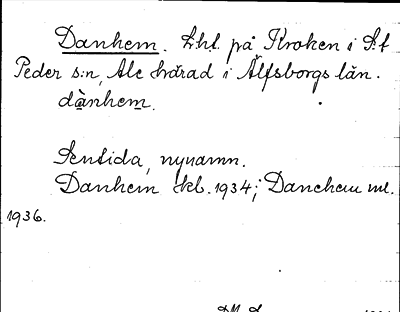 Danhem. Lht. på Kroken i S:t
Peder s:n, Ale härad i Älfsborgs län.
dànhem.
Sentida, nynamn.
Danhem skl. 1934; Danehem ml.
1936.